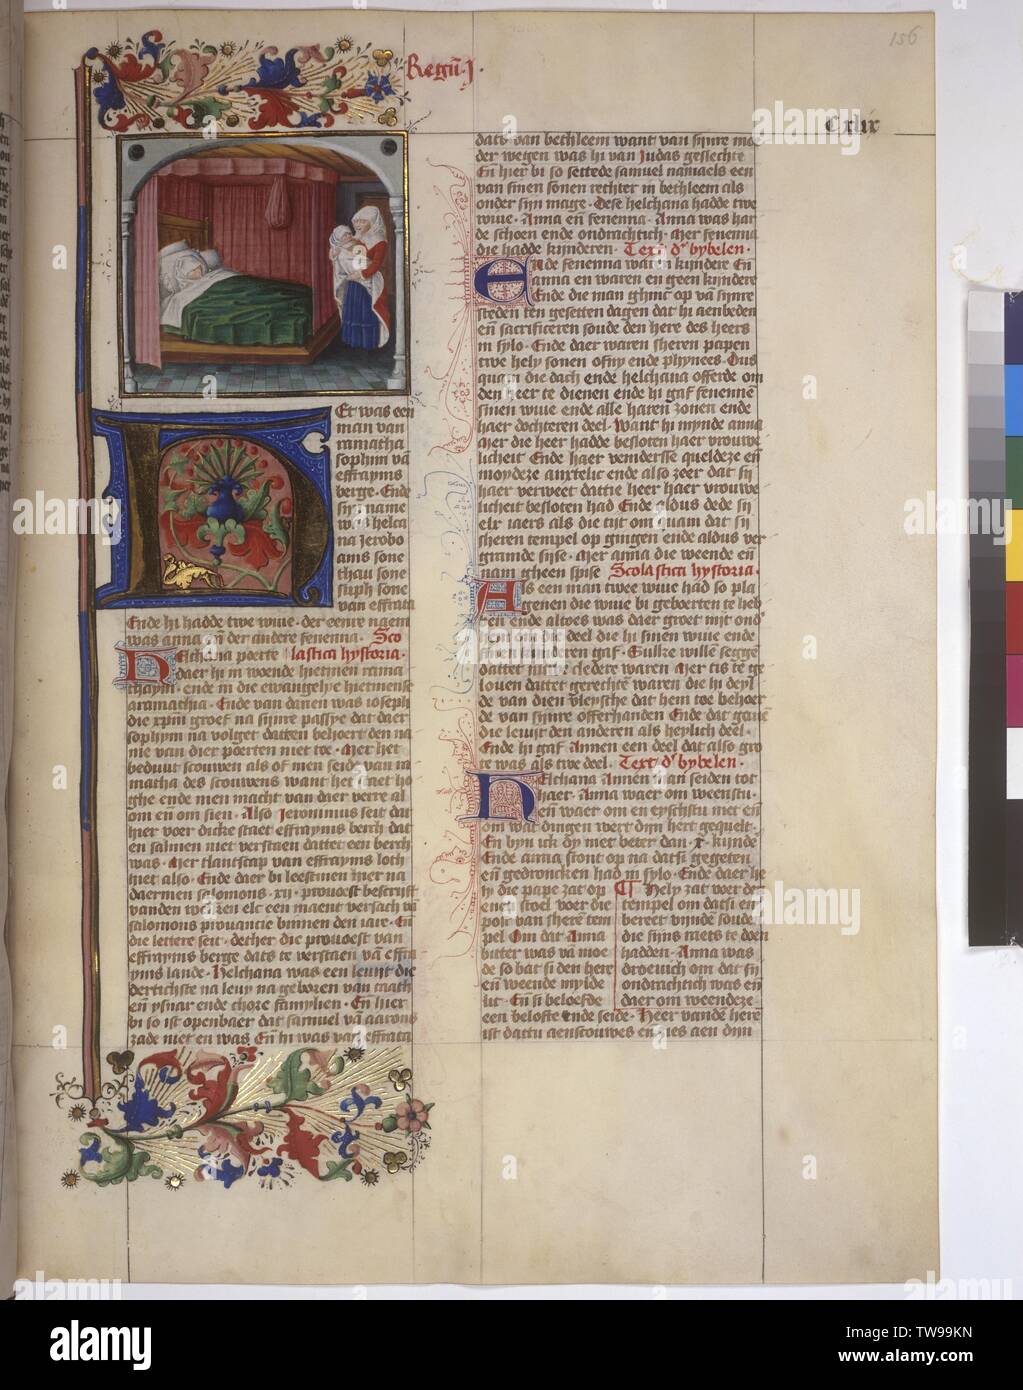 156
Regu͞. j.
Cxlix
Et was een
man van
ramatha
sophim va͞
effrayms
berge. Ende
sijn name
was helca
na jerobo
ams sone
thau sone
suph sone
van effrata
Ende hi hadde twe wiue. der eenre naem
was anna en͞ der andere fenenna. Sco
lastica hystoria.
Elchana poerte
daer hi in woende hietmen rama
thaym. ende in die ewangelye hietmense
aramathia. Ende van danen was ioseph
die xp͞m groef na sijnre passye dat daer
sophym na volget datten behoert den na
me van dier poerten niet toe. Mer het
beduut scouwen als of men seide van ra
matha des scouwens want het staet ho
ghe ende men macht van daer verre al
om en͞ om sien. Also Jeronimus seit dat
hier voer dicke staet effrayms berch dat
en salmen niet verstaen dattet een berch
was. Mer tlantscap van effrayms loth
hiet also. Ende daer bi leestmen hier na
daermen salomons .xij. prouoest bescrijft
vanden welken elc een maent versach va͞
salomons prouancie binnen den iare. En͞
die lettere seit. dether die prouoest van
effrayms berge dats te verstaen va͞ effra
yms lande. Helchana was een leuijt die
dertichste na leuy na geboren van caath
en͞ ysuar ende chore familyen. En͞ hier
bi so ist openbaer dat samuel va͞ aarons
zade niet en was. En͞ hi was van effrata
dats van bethleem want van sijnre moe
der wegen was hi van Judas geslechte
En͞ hier bi so settede samuel namaels een
van sinen sonen rechter in bethleem als
onder sijn mage. Dese helchana hadde twe
wiue. Anna en͞ fenenna. Anna was har
de schoen ende ondrachtich. Mer fenenna
die hadde kijnderen. Text d' bybelen.
Ende fenenna waren kijndere En͞
anna en waren en geen kijndere
Ende die man ghinc op va͞ sijnre
steden ten gesetten dagen dat hi aenbeden
en͞ sacrificeren soude den here des heers
in sylo. Ende daer waren sheren papen
twe hely sonen ofny ende phynees. Dus
quam die dach ende helchana offerde om
den heer te dienen ende hi gaf fenennen
sinen wiue ende alle haren zonen ende
haer dochteren deel. Want hi mynde anna
Mer die heer hadde besloten haer vrouwe
licheit Ende haer venidersse queldeze en͞
moydeze anxtelic ende also zeer dat sij
haer verweet dattie heer haer vrouwe
licheit besloten had Ende aldus dede sij
elx iaers als die tijt om quam dat sij
sheren tempel op gingen ende aldus ver
gramde sijse. Mer anna die weende en͞
nam gheen spise Scolastica hystoria.
Als een man twee wiue had so pla
genen die wiue bi geboerten te heb
ben ende altoes was daer groet nijt ond'
hem om die deel die hi sinen wiue ende
sinen kinderen gaf. Sulke wille͞ segge͞
dattet cledere waren Mer tis te ge
louen dattet gerechte͞ waren die hi deyl
de van dien vleysche dat hem toe behoer
de van sijnre offerhanden Ende dat gaue͞
die leuijt den anderen als heylich deel.
Ende hi gaf Annen een deel dat also gro
te was als twe deel. Text d' bybelen.
Elchana Annen man seiden tot
haer. Anna waer om weenstu.
en͞ waer om en etstu niet en͞
om wat dingen wert dijn hert gequelt.
En byn ick dy niet beter dan .x. kijnde'
Ende anna stont op na datsi gegeten
en͞ gedroncken had in sylo. Ende daer he
ly die pape zat op
enen stoel voer die
post van sheren tem
pel Om dat Anna
bitter was va͞ moe
de so bat si den here
en͞ weende mylde
lic. En͞ si beloefde
¶ Hely zat voer den
tempel om datsi en͞
bereet vynde͞ soude͞
die sijns raets te doen
hadden. Anna was
droeuich om dat sij
ondrachtich was en͞
daer om weendeze
een belofte ende seide. Heer vande͞ here͞
ist dattu aenscouwes en͞ ies aen dijn
alamy
Image ID: TW99KN
www.alamy.com